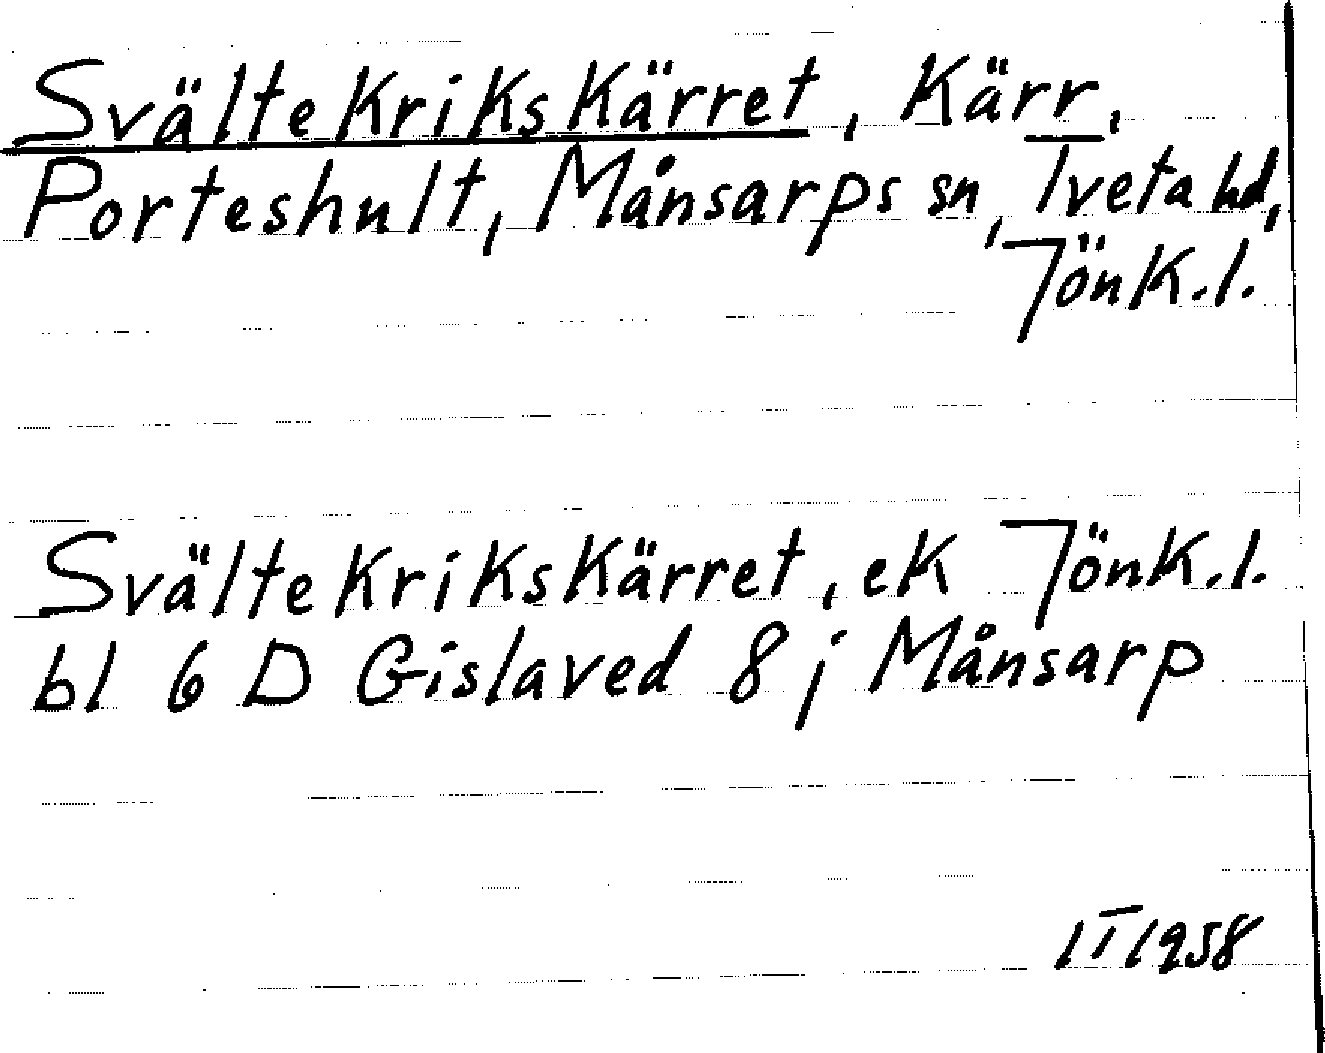 Svältekrikskärret, Kärr,
Porteshult, Månsarps sn, Tveta hd,
Jönk.l.
Svältekrikskärret, ek Jönk.l.
bl 6 D Gislaved 8 j Månsarp
1958